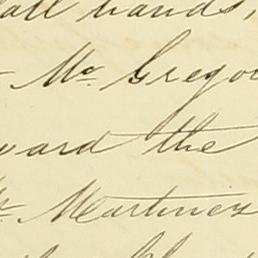 all hands,
Mc Grego
ward the
Martinez